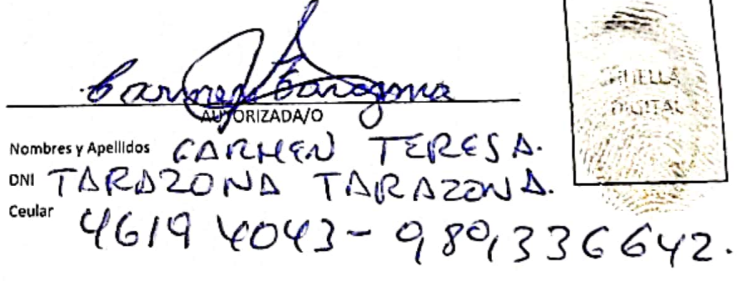 Carmen Tarazona
AUTORIZADA/O
HUELLA
DIGITAL
Nombres y Apellidos CARMEN TERESA.
DNI TARAZONA TARAZONA.
Ceular 46194043 - 989336642.